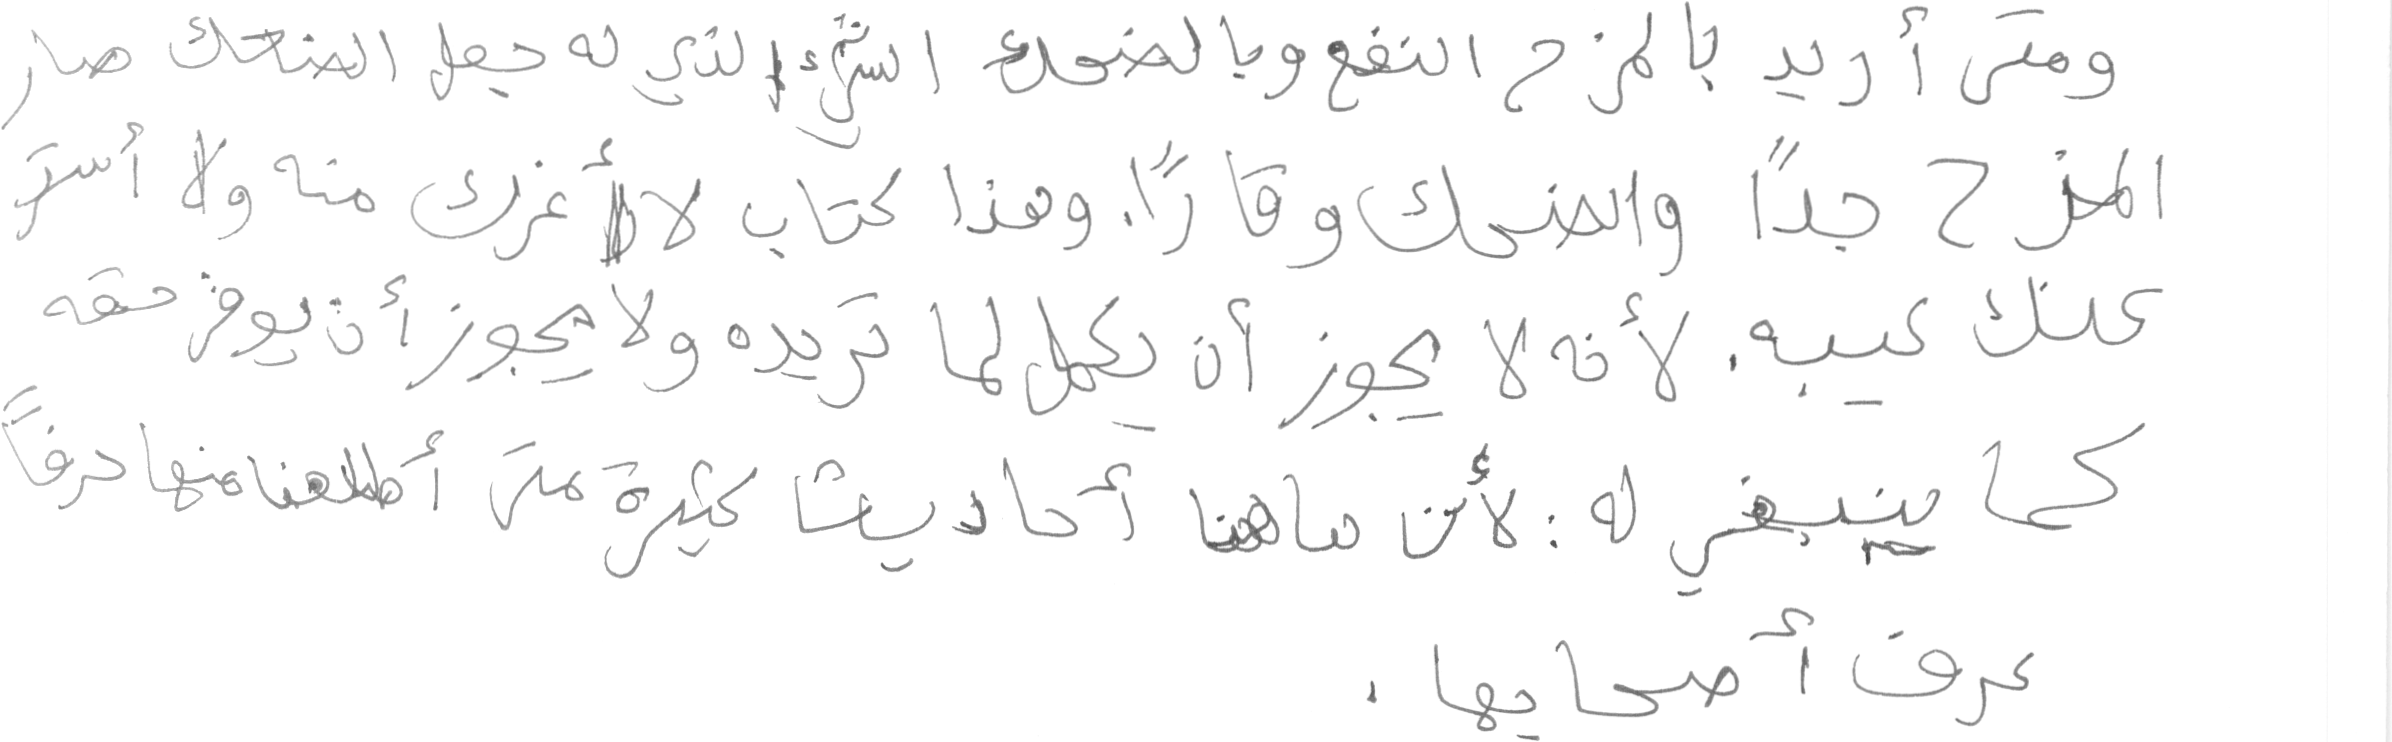 ومتى أريد بالمزح النفع وبالضحك الشيء الذي له جعل الضحك صار
المزح جدًا والضحك وقارًا. وهذا كتاب لا أغرك منه ولا أستر
عنك عيبه. لأنه لا يجوز أن يكمل لما تريده ولا يجوز أن يوفى حقه
كما ينبغي له: لأن هاهنا أحاديثًا كثيرة متى أطلعنا منها حرفًا
عرف أصحابها.